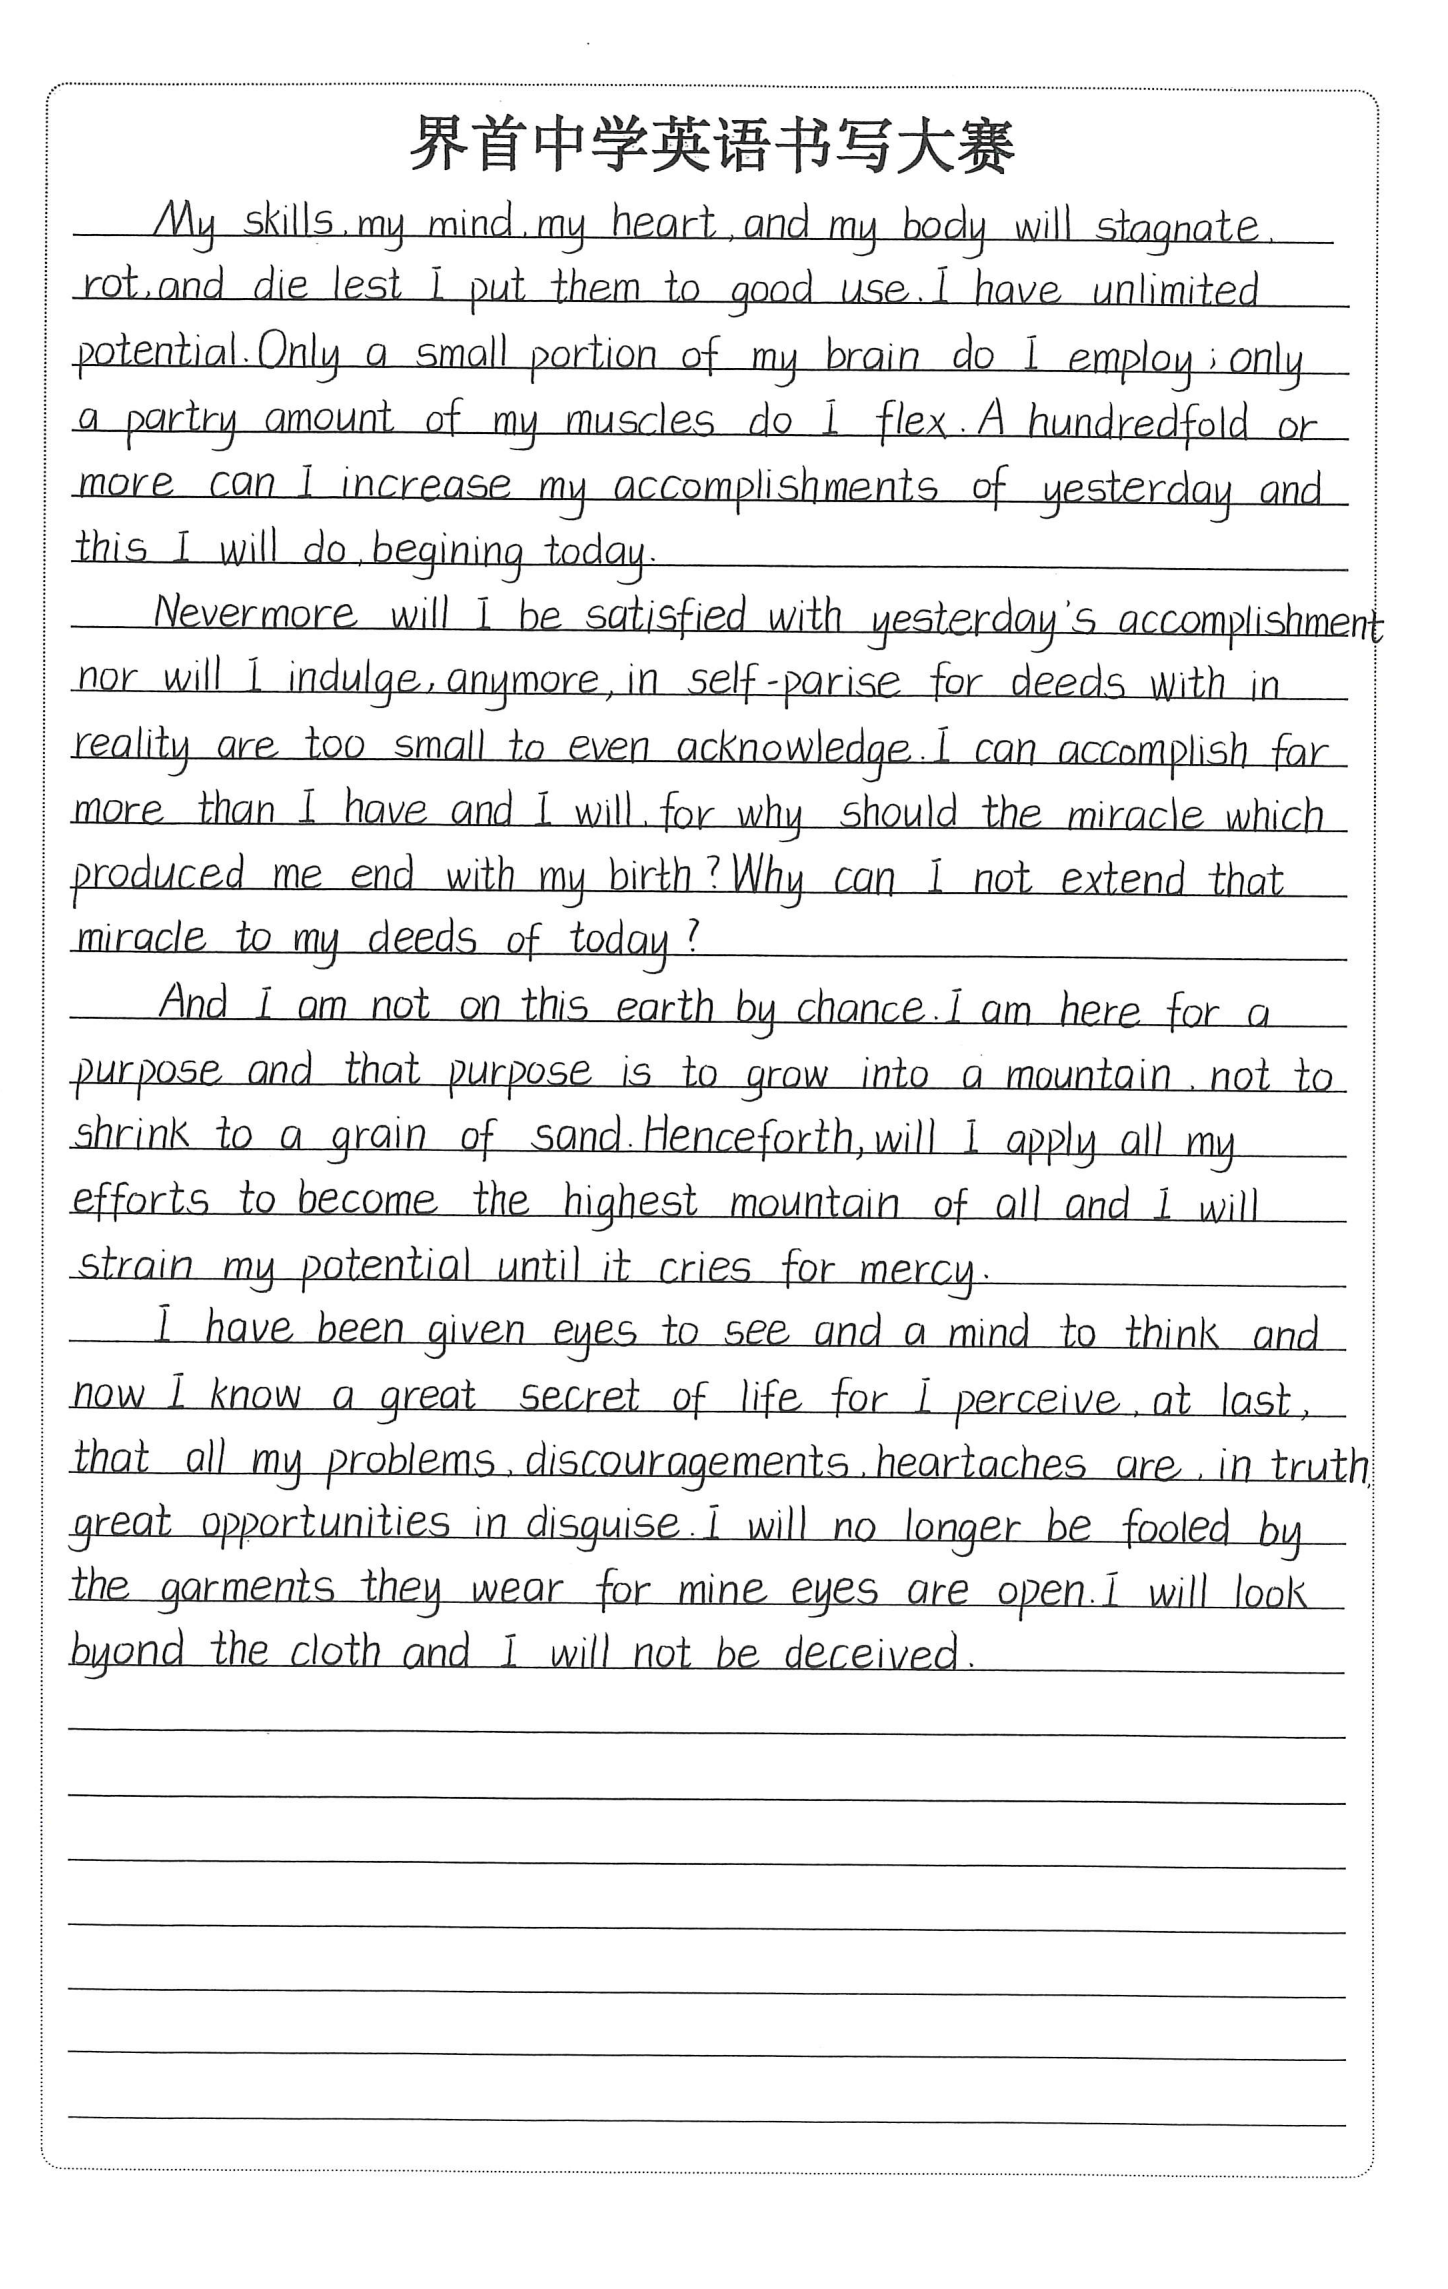 界首中学英语书写大赛
My skills, my mind, my heart, and my body will stagnate,
rot, and die lest I put them to good use. I have unlimited
potential. Only a small portion of my brain do I employ; only
a partry amount of my muscles do I flex. A hundredfold or
more can I increase my accomplishments of yesterday and
this I will do, begining today.
Nevermore will I be satisfied with yesterday's accomplishment
nor will I indulge, anymore, in self-parise for deeds with in
reality are too small to even acknowledge. I can accomplish far
more than I have and I will, for why should the miracle which
produced me end with my birth? Why can I not extend that
miracle to my deeds of today?
And I am not on this earth by chance. I am here for a
purpose and that purpose is to grow into a mountain, not to
shrink to a grain of sand. Henceforth, will I apply all my
efforts to become the highest mountain of all and I will
strain my potential until it cries for mercy.
I have been given eyes to see and a mind to think and
now I know a great secret of life for I perceive, at last,
that all my problems, discouragements, heartaches are, in truth,
great opportunities in disguise. I will no longer be fooled by
the garments they wear for mine eyes are open. I will look
byond the cloth and I will not be deceived.